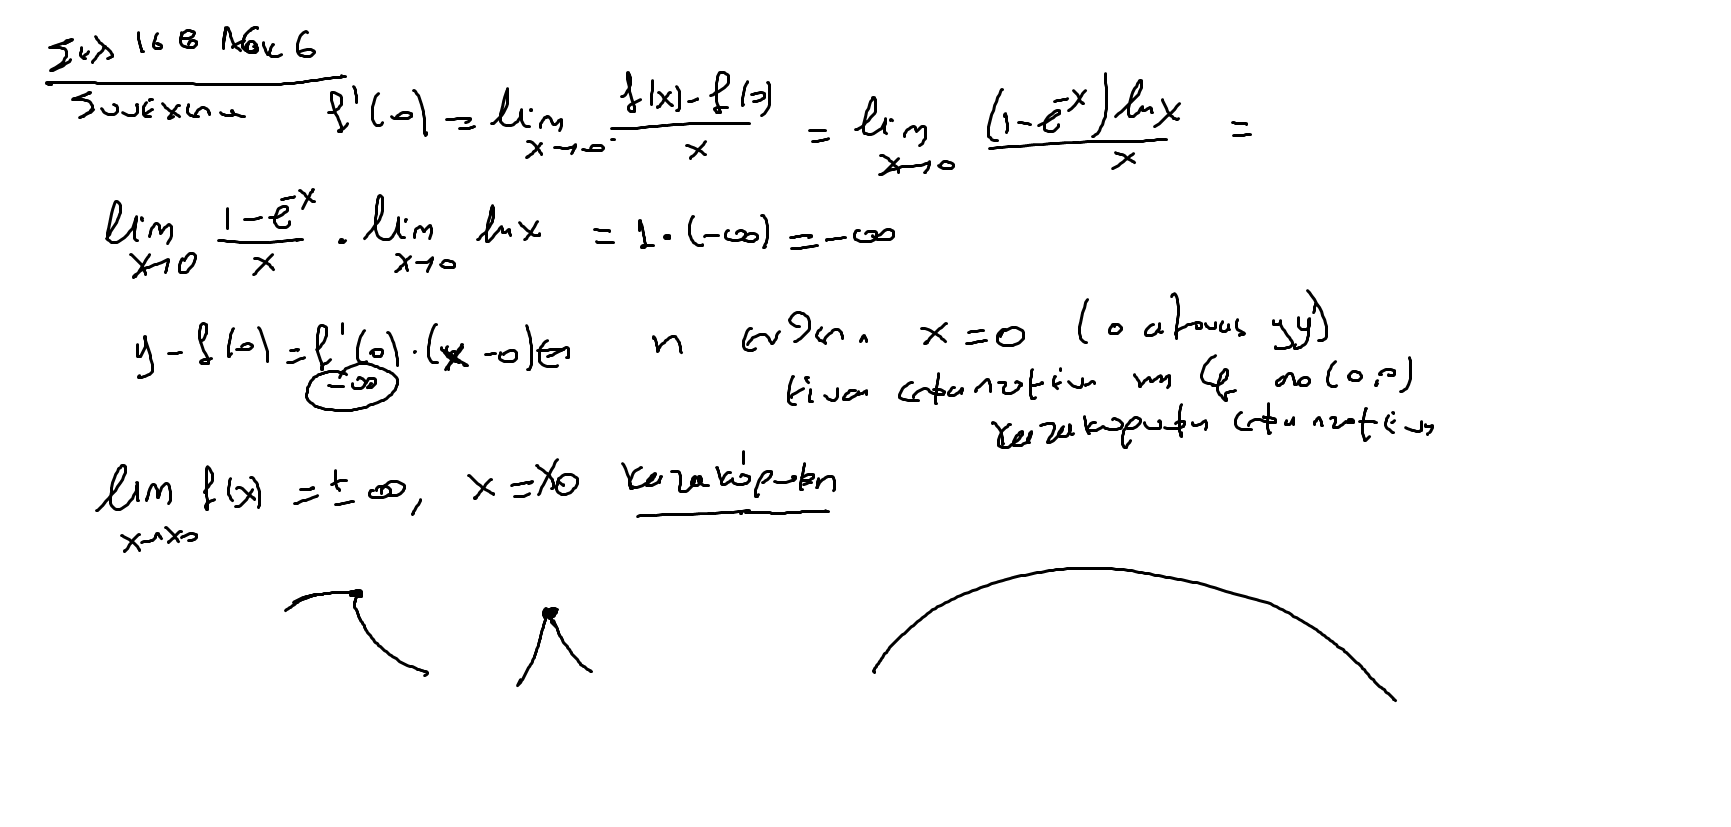 Σελ 168 Άσκ 6
Συνέχεια
f'(0) = lim x→0 (f(x) - f(0))/x = lim x→0 ((1-e^{-x}) ln x)/x =
lim x→0 (1-e^{-x})/x · lim x→0 ln x = 1·(-∞) = -∞
y - f(0) = f'(0)·(x - 0) η ευθεία x = 0 (ο άξονας yy')
-∞
είναι εφαπτομένη της Cf στο (0,0)
κατακόρυφη εφαπτομένη
lim x→x0 f(x) = ±∞, x = x0 κατακόρυφη